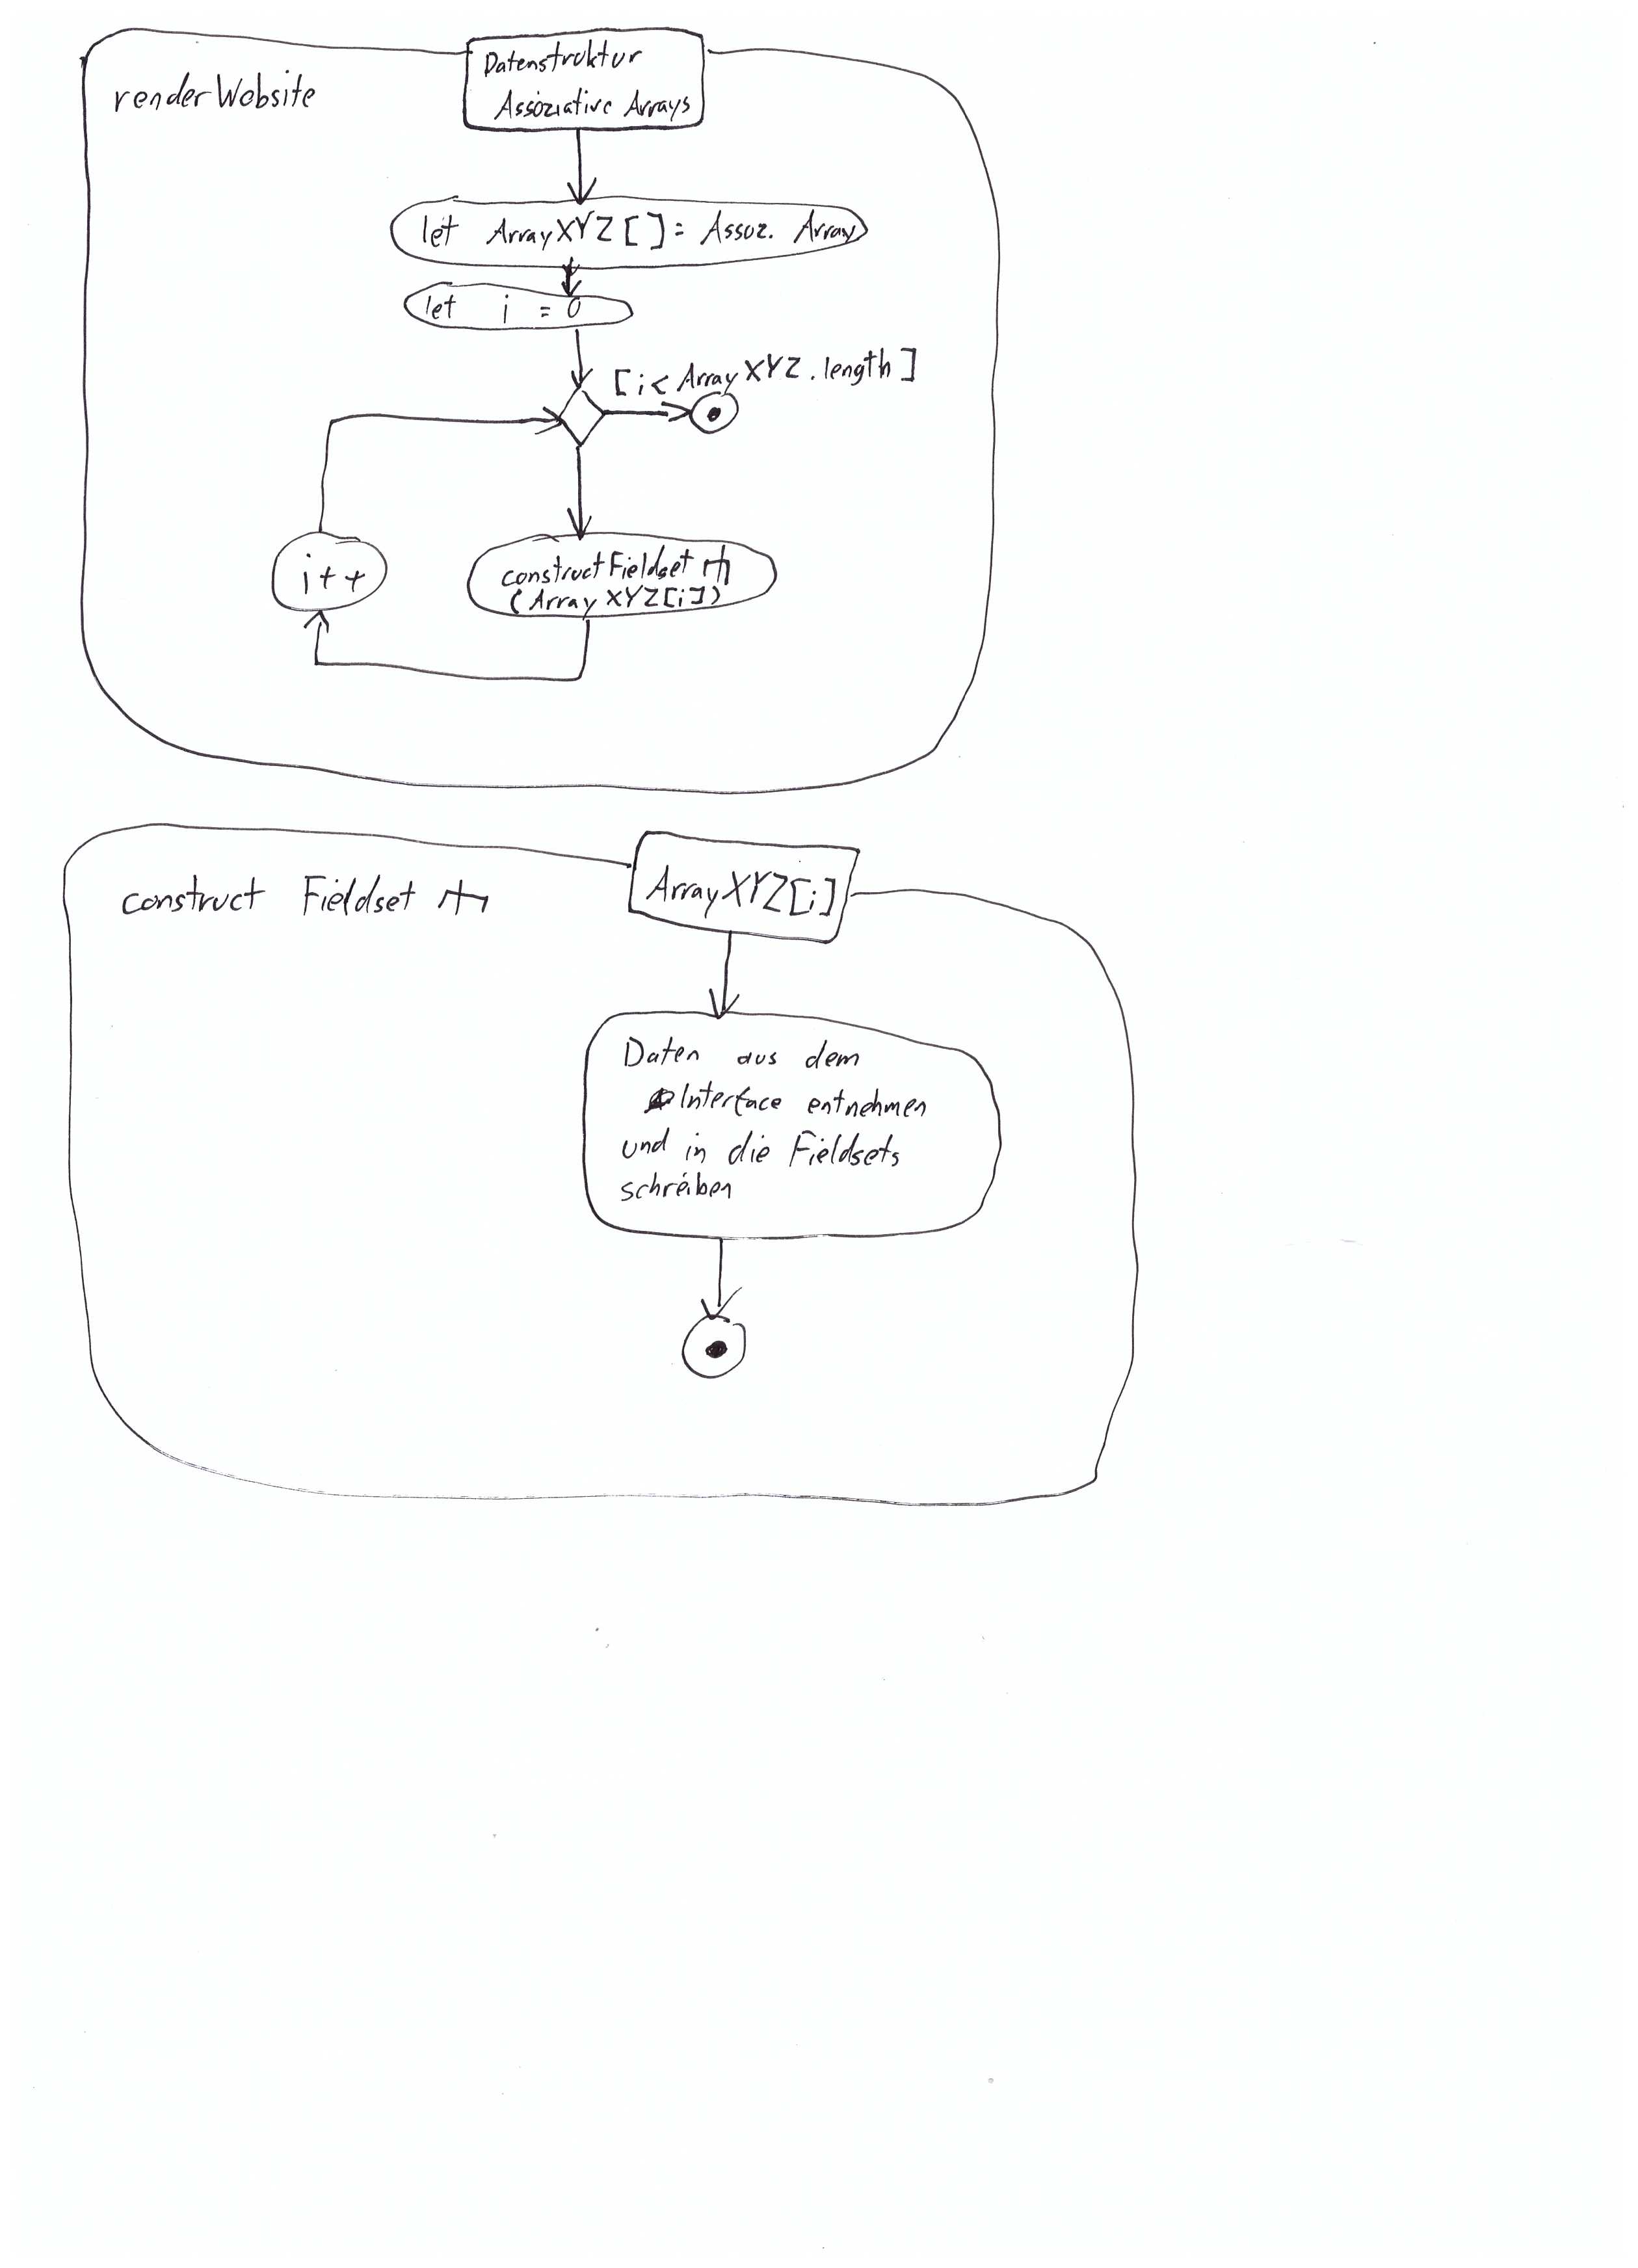 renderWebsite
Datenstruktur
Assoziative Arrays
let ArrayXYZ[]= Assoz. Array
let i = 0
[i< ArrayXYZ.length]
i++
constructFieldset
(ArrayXYZ[i])
construct Fieldset
ArrayXYZ[i]
Daten aus dem
Interface entnehmen
und in die Fieldsets
schreiben